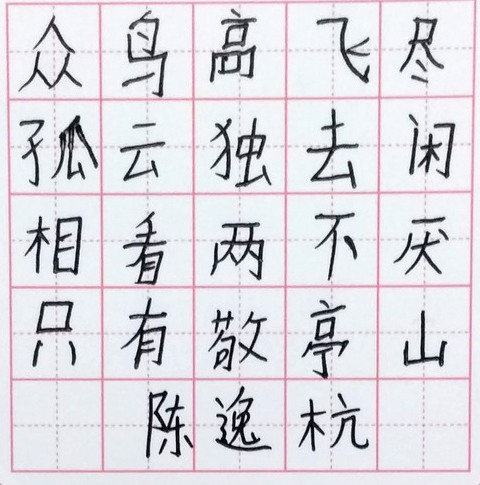 众鸟高飞尽
孤云独去闲
相看两不厌
只有敬亭山
陈逸杭